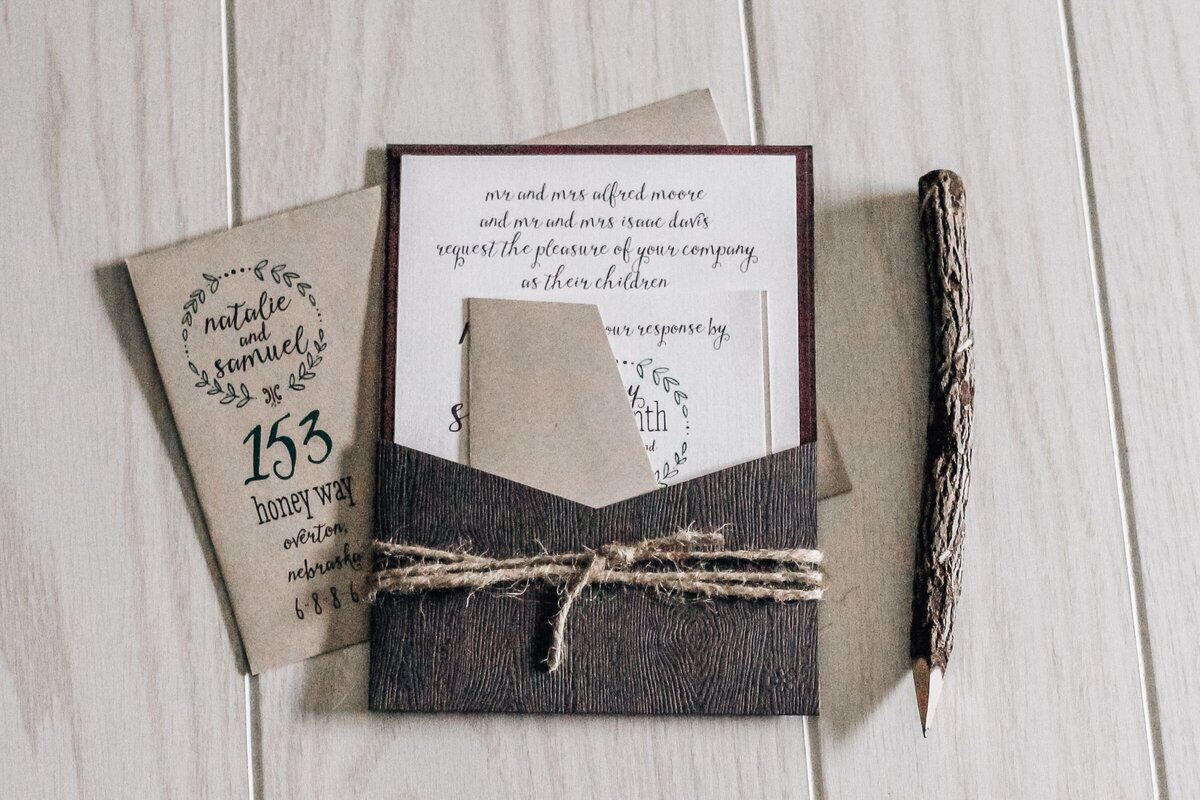 natalie
and
samuel
153
honey way
overton,
nebraska
6·8·8·6
mr and mrs alfred moore
and mr and mrs isaac davis
request the pleasure of your company
as their children
response by